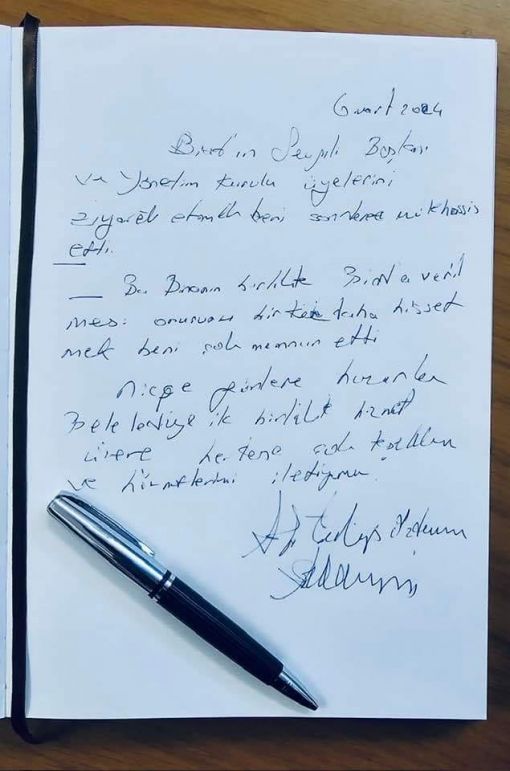 6 mart 2024
Birlik'in Sevgili Başkanı
ve Yönetim kurulu üyelerini
ziyaret etmek beni son derece mütehassis
etti.
Bu Binanın birlikte veril
mesi onurunu bir kez daha hisset
mek beni çok memnun etti
Nice günlere huzurla
Belediye ile birlikte hizmet
üzere herkese çok
ve hürmetlerimi iletiyorum.